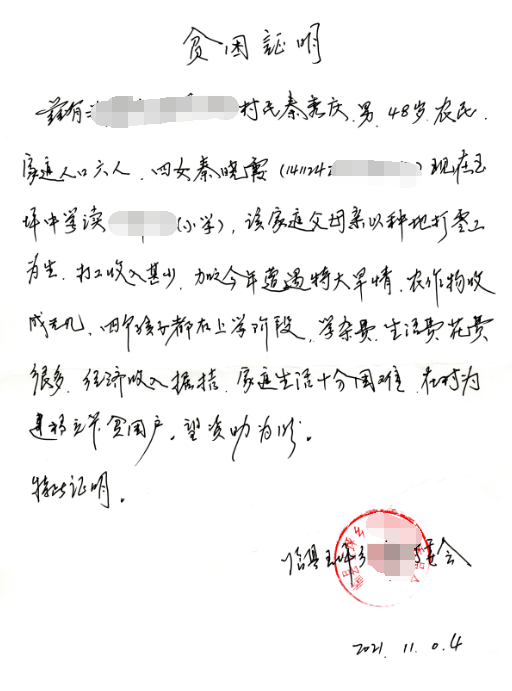 贫困证明
兹有 村民秦秀庆,男,48岁,农民,
家庭人口六人,四女秦晓霞(141124 )现在玉
坪中学读 (小学),该家庭父母亲以种地打零工
为生,打工收入甚少,加之今年遭遇特大旱情,农作物收
成无几,四个孩子都在上学阶段,学杂费、生活费花费
很多,经济收入拮据,家庭生活十分困难,在村为
建档立卡贫困户,望资助为盼。
特此证明。
临县玉坪乡 委会
2021.11.04